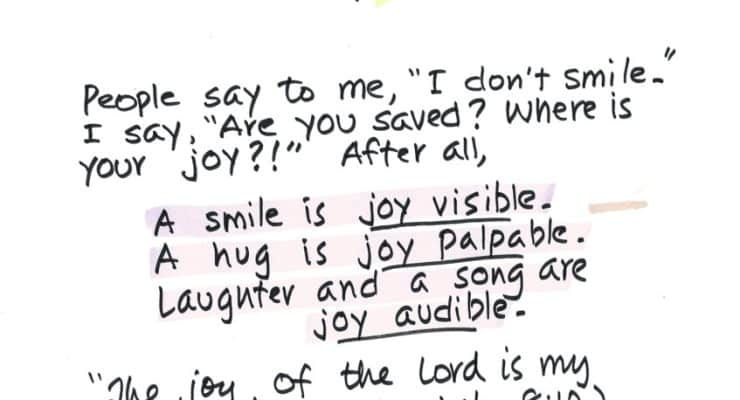 People say to me, "I don't smile."
I say, "Are you saved? Where is
your joy?!" After all,
A smile is joy visible.
A hug is joy palpable.
Laughter and a song are
joy audible.
"The joy of the Lord is my